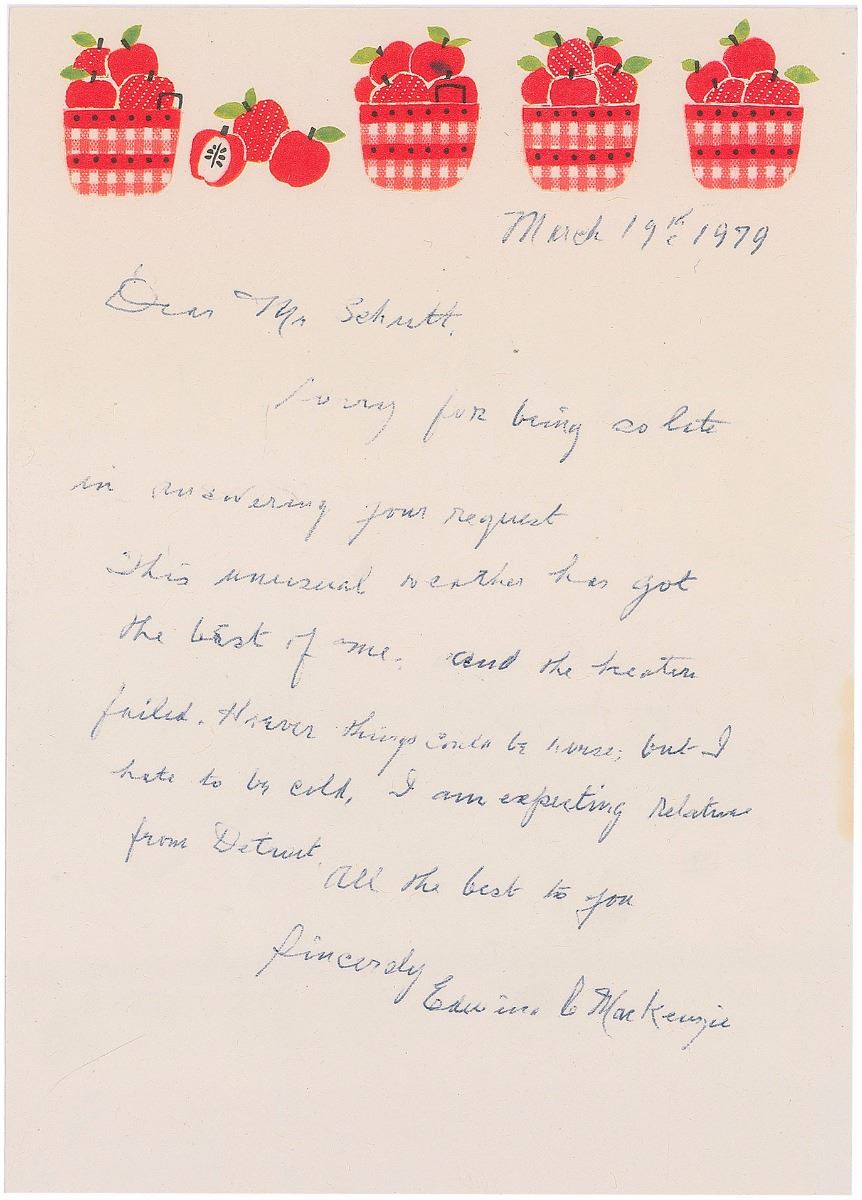 March 19th 1979
Dear Mr Schutt.
Sorry for being so late
in answering your request
This unusual weather has got
the best of me. and the heaters
failed. However things could be worse; but I
hate to be cold, I am expecting relatives
from Detroit.
All the best to you
Sincerely
Edwina C MacKenzie